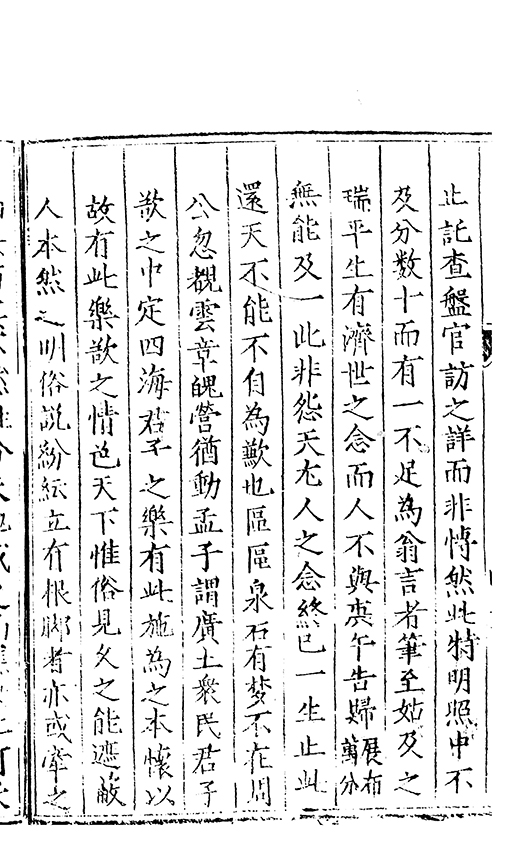 止託查盤官訪之詳而非愽然此特明照中不
及分数十而有一不足為翁言者筆至姑及之
瑞平生有濟世之念而人不與庚午告歸展布萬分
無能及一此非怨天尤人之念終已一生止此
還天不能不自為歉也區區泉石有梦不在周
公忽覩雲章魄營猶動孟子謂廣土衆民君子
欲之中定四海君子之樂有此施為之本懷以
故有此樂欲之情也天下惟俗見久之能遮蔽
人本然之明俗說紛紜立有根脚者亦或牽之